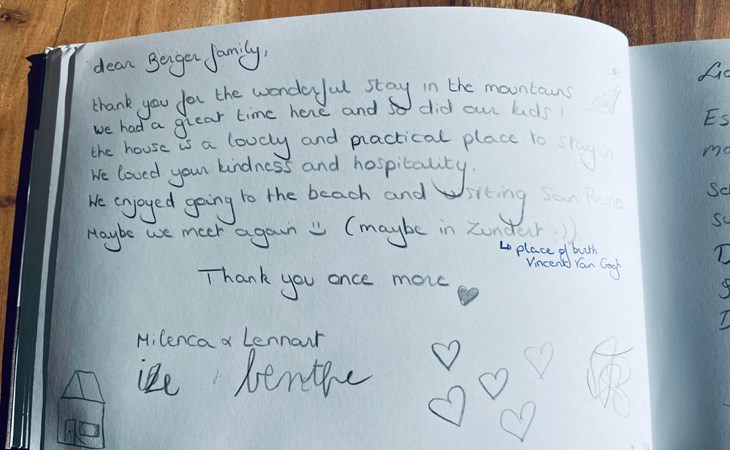 dear Berger family,
thank you for the wonderful stay in the mountains
we had a great time here and so did our kids!
the house is a lovely and practical place to stay in
We loved your kindness and hospitality.
We enjoyed going to the beach and visiting San Remo
Maybe we meet again :) (maybe in Zundert :))
↳ place of birth
Vincent Van Gogh
Thank you once more ♥
Milenca & Lennart
benthe
Es